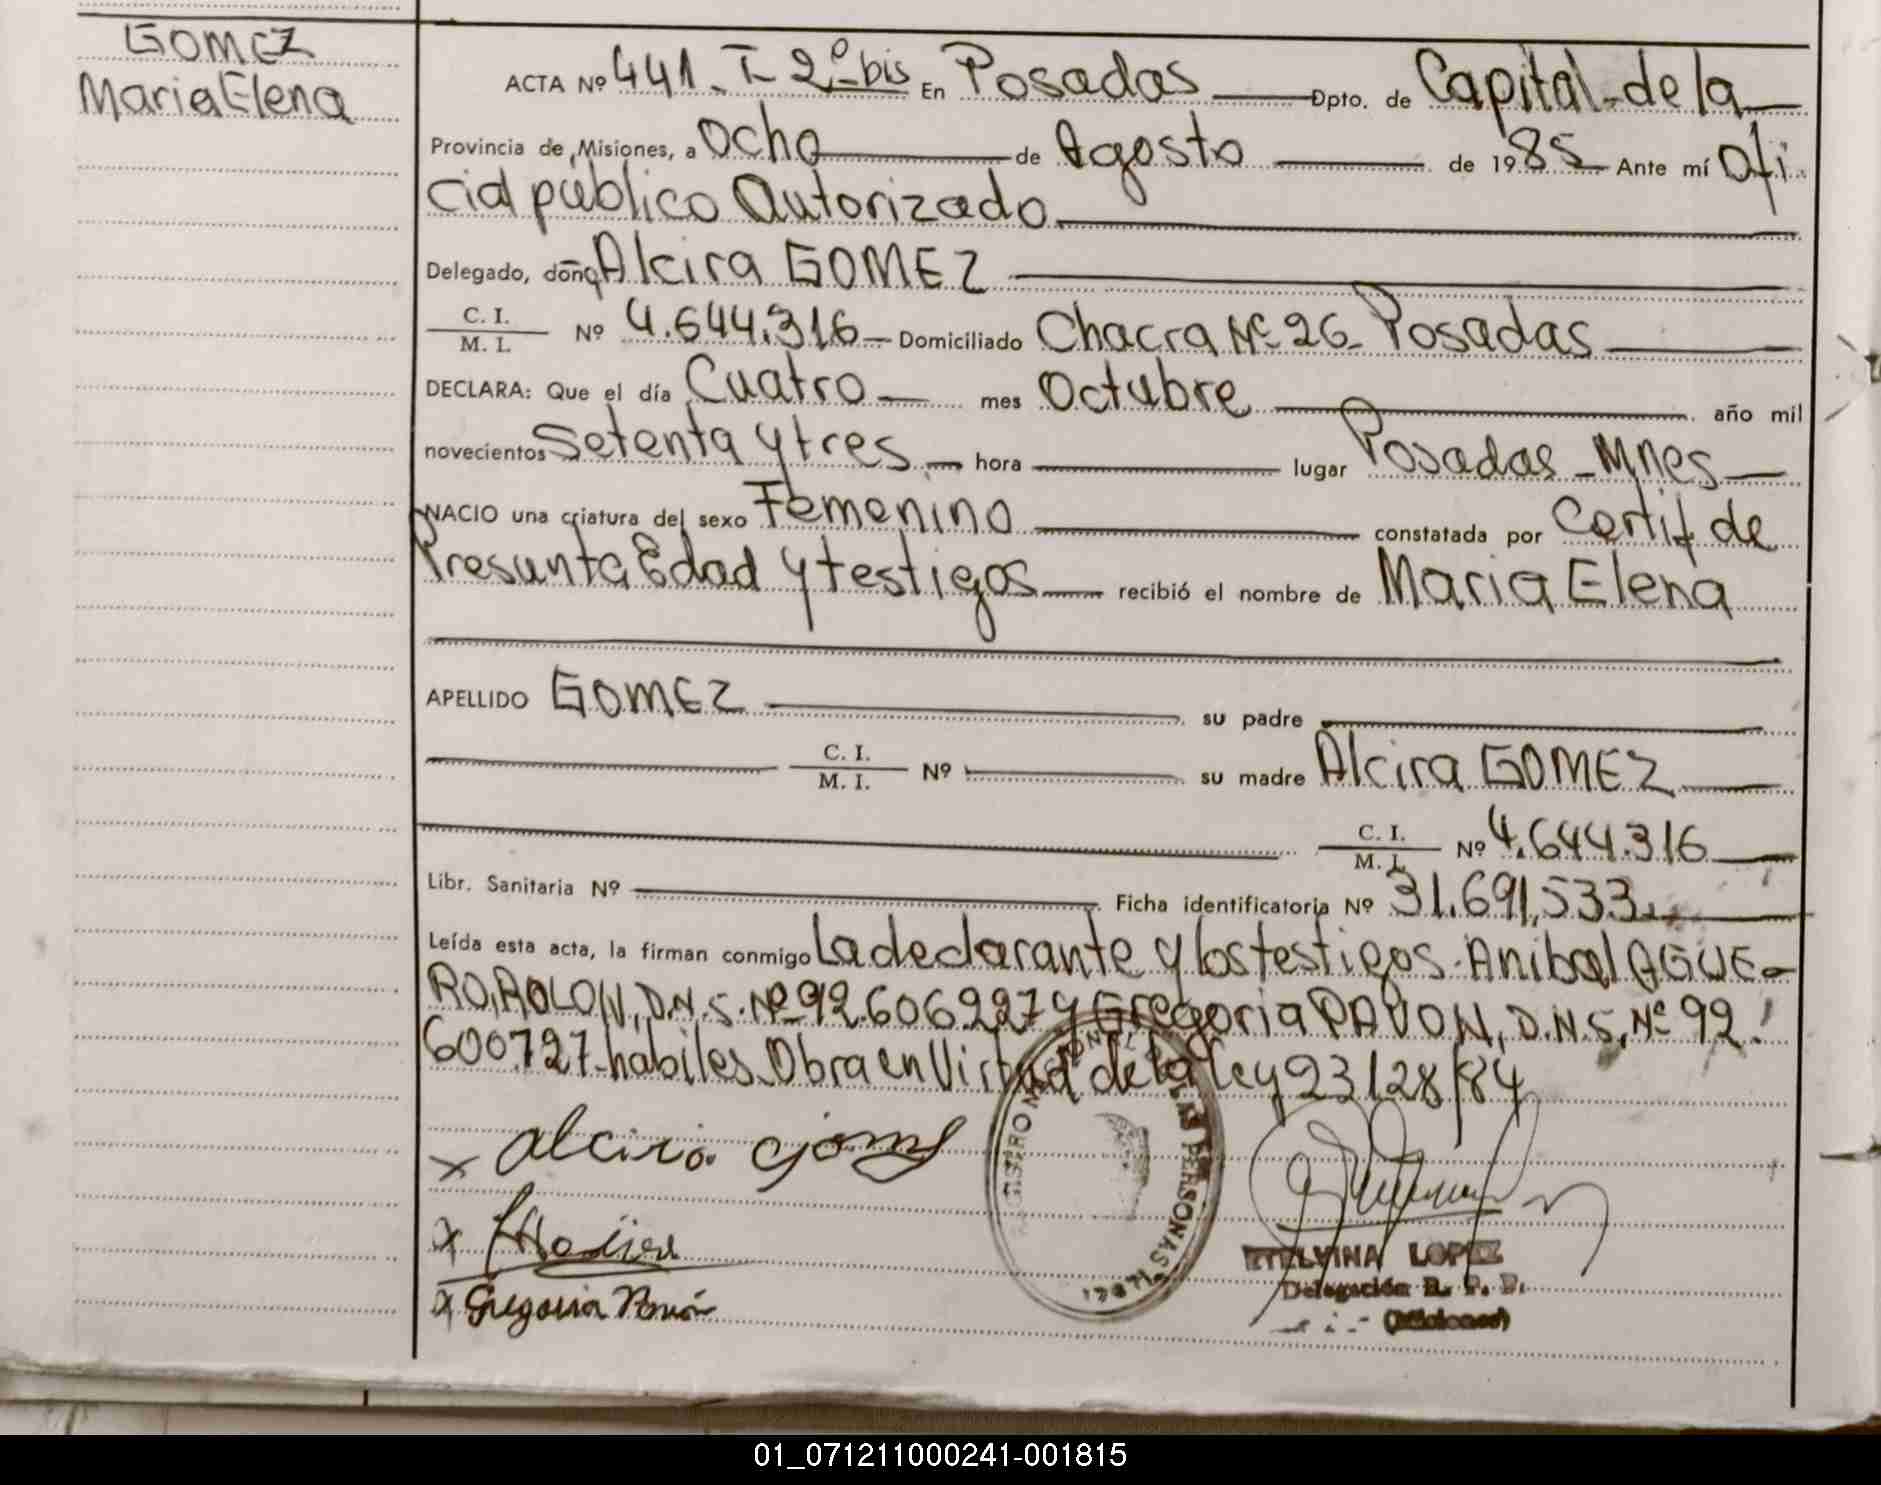 GOMEZ
Maria Elena
ACTA Nº 441. T- 2º bis En Posadas Dpto. de Capital de la
Provincia de Misiones, a Ocho de Agosto de 1985 Ante mí Ofi
cial público Autorizado
Delegado, doña Alcira GOMEZ
C. I.
M. I. Nº 4.644.316 Domiciliado Chacra Nº 26 Posadas
DECLARA: Que el día Cuatro mes Octubre año mil
novecientos Setenta y tres hora lugar Posadas - Mnes
NACIO una criatura del sexo Femenino constatada por Certif de
Presunta Edad y testigos recibió el nombre de Maria Elena
APELLIDO GOMEZ su padre
C. I.
M. I. Nº su madre Alcira GOMEZ
C. I.
M. I. Nº 4.644.316
Libr. Sanitaria Nº Ficha identificatoria Nº 31.691.533.
Leída esta acta, la firman conmigo La declarante y los testigos. Anibal AGUE-
RO, ROLON, D.N.S. Nº 92.606.227 y Gregoria PAVON, D.N.S, Nº 92.
600.727. habiles. Obra en Virtud de la Ley 23.128/84
x Alcira Gomez
x
x Gregoria Pavón
REGISTRO NACIONAL DE LAS PERSONAS
ETELVINA LOPEZ
Delegación R. P. P.
(Misiones)
01_071211000241-001815